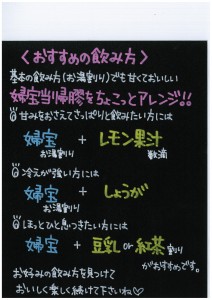 〈おすすめの飲み方〉
基本の飲み方(お湯割り)でも甘くておいしい
婦宝当帰膠をちょこっとアレンジ!!
甘みをおさえてさっぱりと飲みたい方には
婦宝 + レモン果汁
お湯割り 数滴
冷えが強い方には
婦宝 + しょうが
お湯割り
ほっとひと息つきたい方には
婦宝 + 豆乳 or 紅茶 割り
がおすすめです。
お好みの飲み方を見つけて
おいしく楽しく続けて下さいね♡